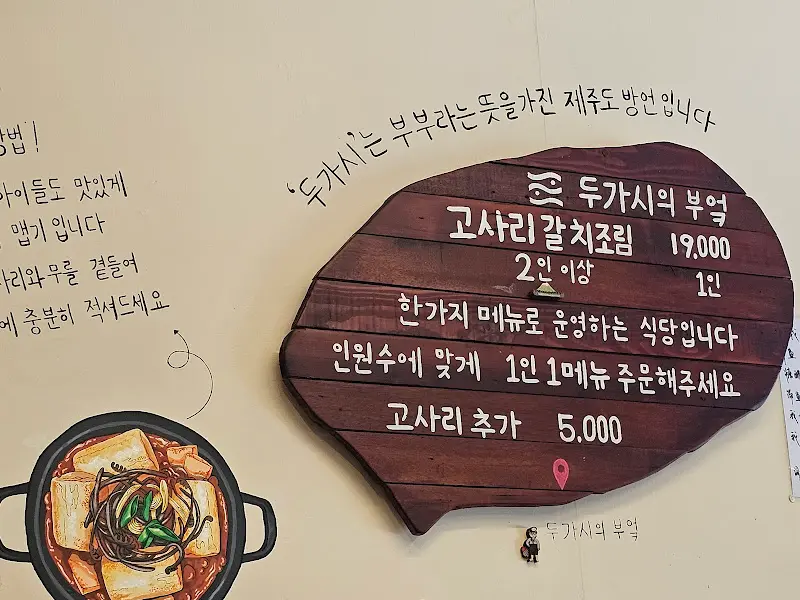 '두가시'는 부부라는 뜻을가진 제주도 방언입니다
두가시의 부엌
고사리갈치조림 19,000
2인 이상 1인
한가지 메뉴로 운영하는 식당입니다
인원수에 맞게 1인 1메뉴 주문해주세요
고사리 추가 5,000
두가시의 부엌
법!
아이들도 맛있게
맵기입니다
사리와 무를 곁들여
에 충분히 적셔드세요